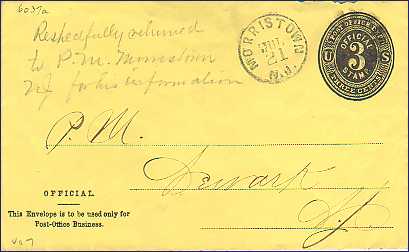 6037a
Respectfully returned
to P.M. Morristown
NJ for his information
MORRISTOWN
JUL
21
N.J.
POST OFFICE DEPT.
OFFICIAL
U 3 S
STAMP
THREE CENTS
P. M.
Newark
NJ
OFFICIAL.
This Envelope is to be used only for
Post-Office Business.